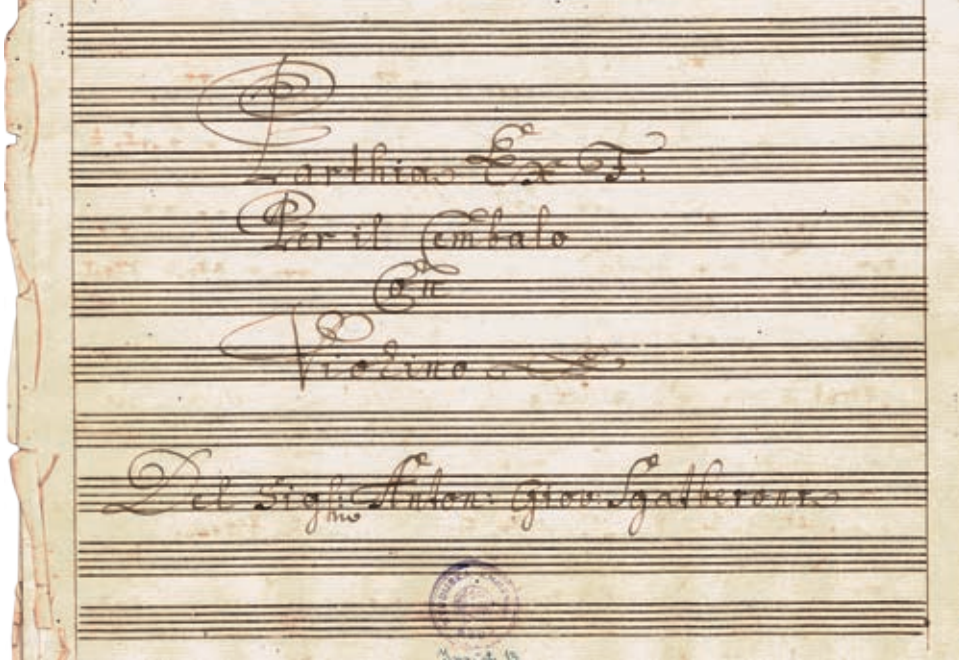 Parthia Ex F:
Per il Cembalo
Con
Violino
Del Sigh: Anton: Giov: Sgatberoni
mo